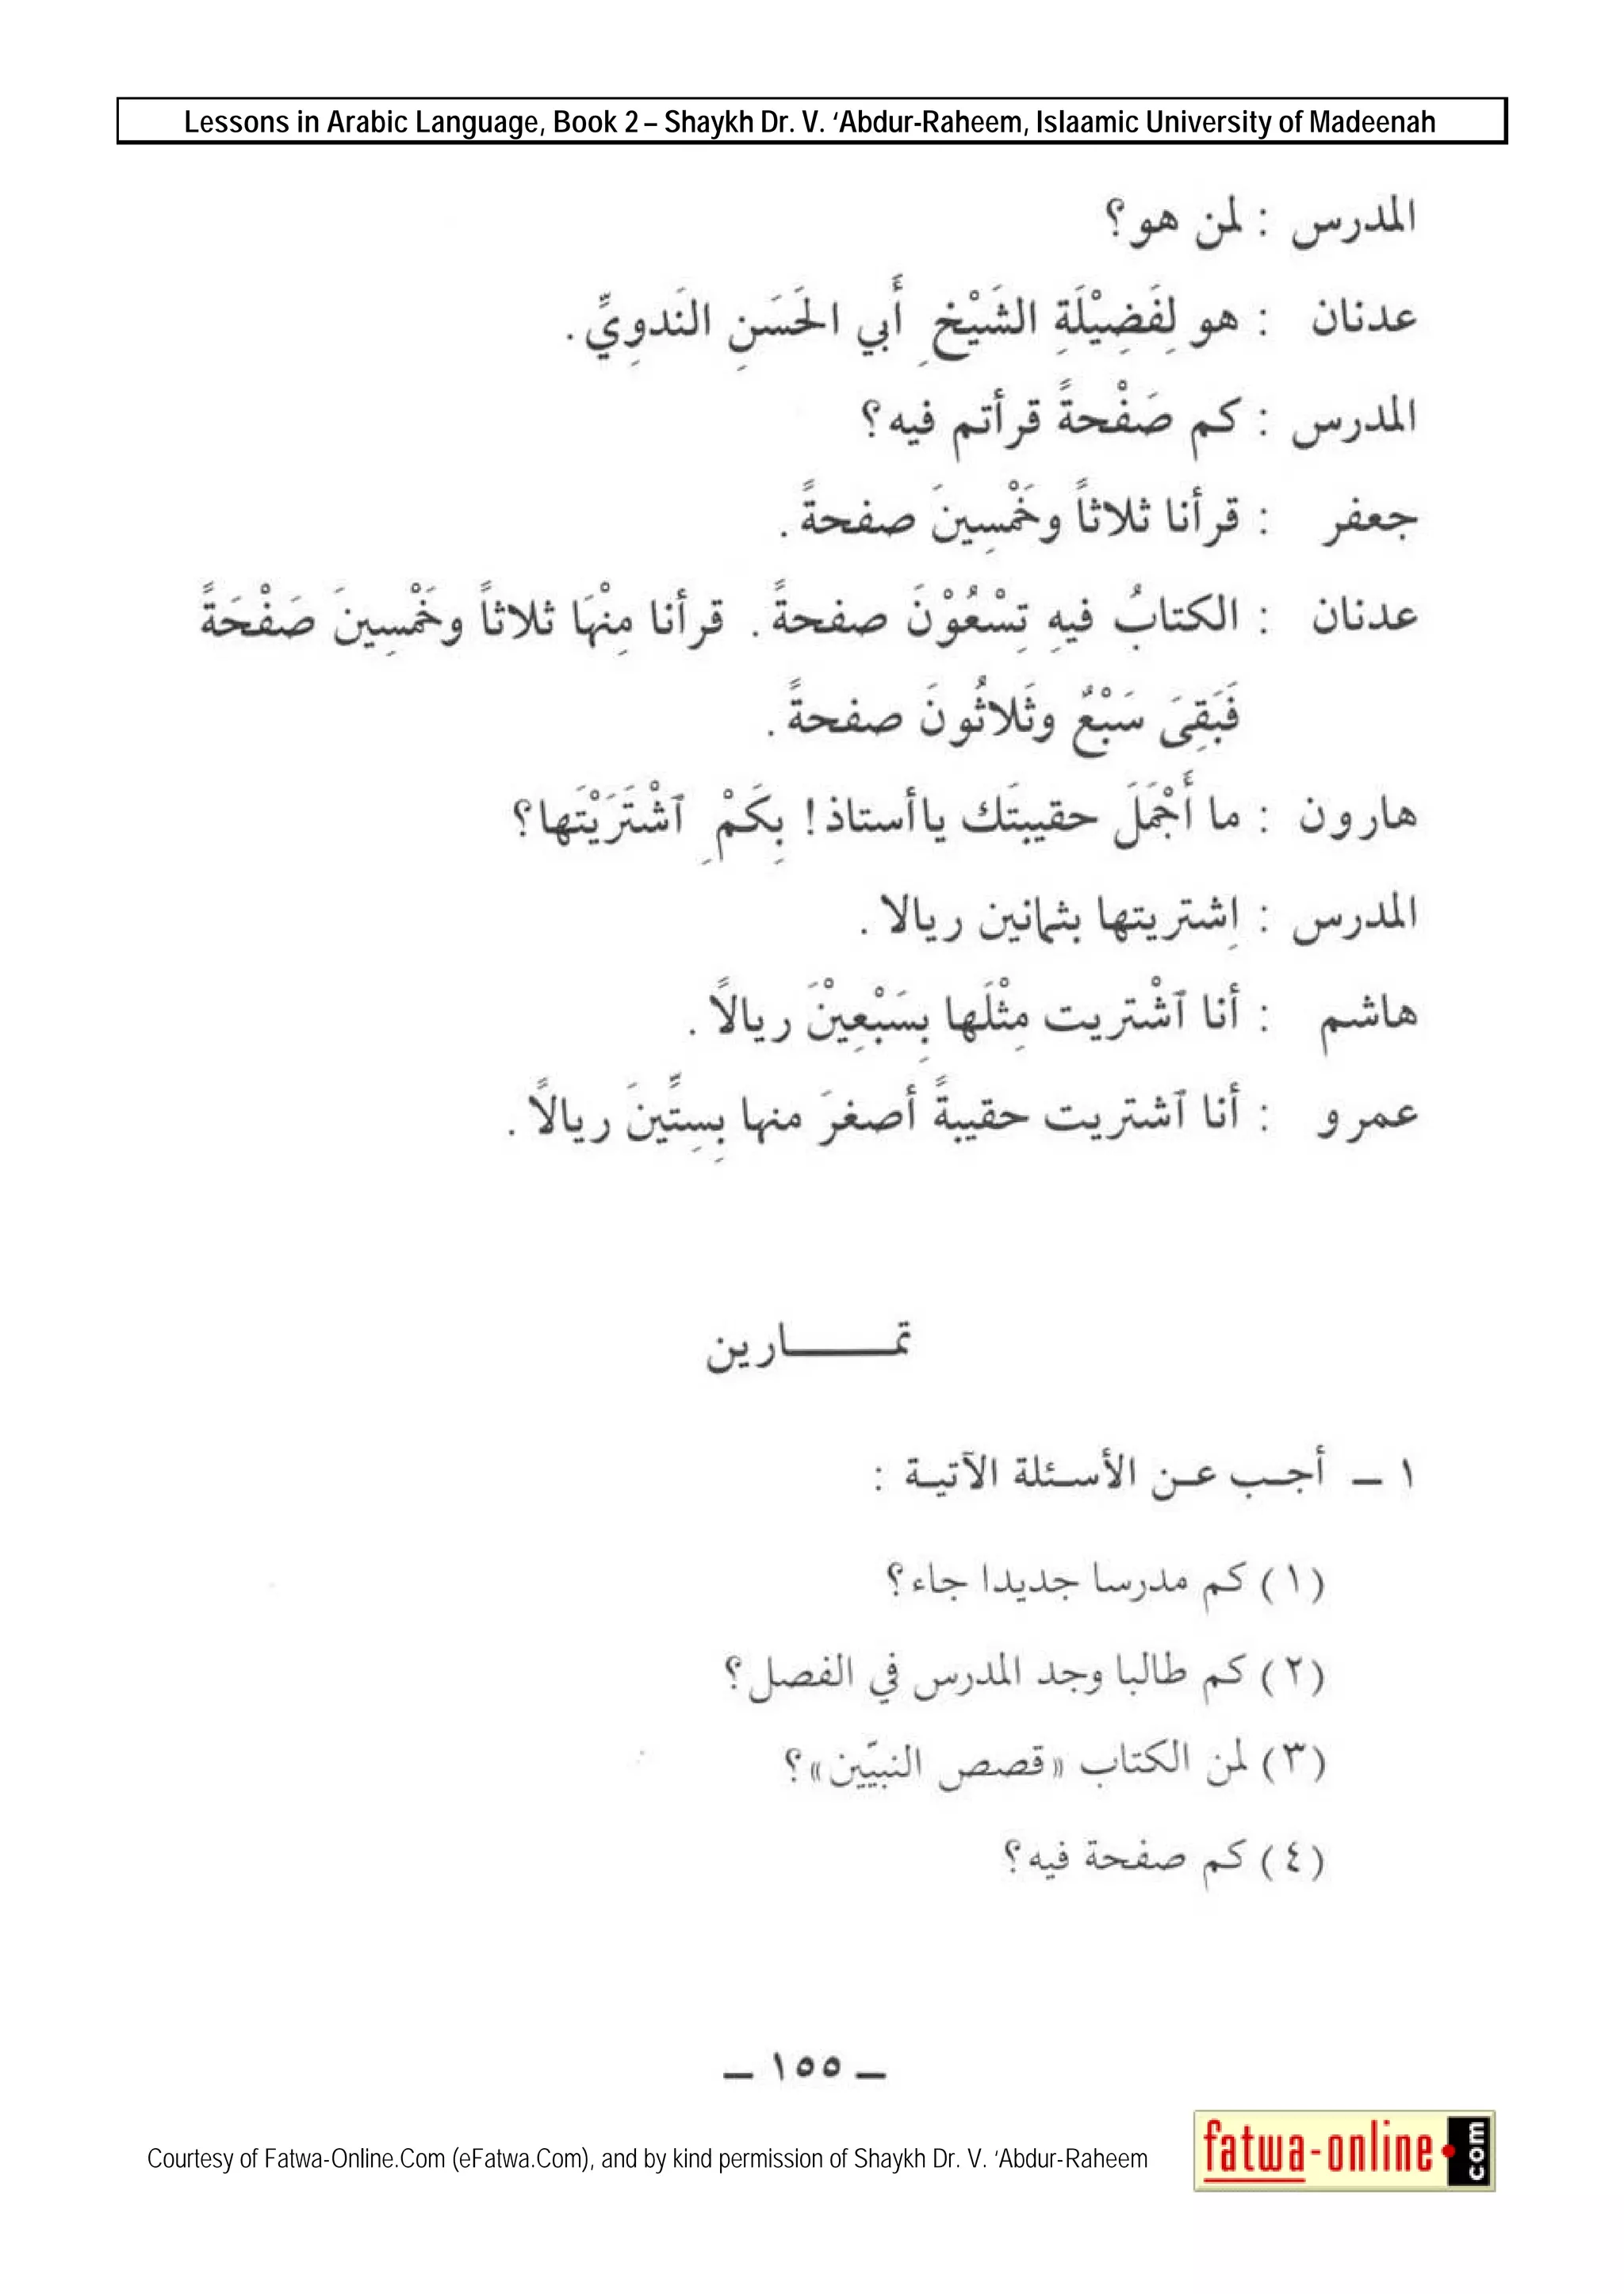 Lessons in Arabic Language, Book 2 – Shaykh Dr. V. ‘Abdur-Raheem, Islaamic University of Madeenah
المدرس : لمن هو؟
عدنان : هو لِفَضِيْلَةِ الشَيْخِ أَبي الحَسَنِ النَدوِيِّ .
المدرس : كم صَفْحةً قرأتم فيه؟
جعفر : قرأنا ثلاثاً وخَمْسِينَ صفحةً .
عدنان : الكتابُ فيهِ تِسْعُوْنَ صفحةً . قرأنا مِنْهَا ثلاثاً وخَمْسِينَ صَفْحَةً
فَبَقِىَ سَبْعٌ وثَلاثُونَ صفحةً .
هارون : ما أَجْمَلَ حقيبتَك ياأستاذ! بِكَمْ ِ ٱشْتَرَيْتَها؟
المدرس : اِشتريتها بثمانين ريالا .
هاشم : أنا ٱشْتريت مِثْلَها بِسَبْعِيْنَ ريالاً .
عمرو : أنا ٱشتريت حقيبةً أصغرَ منها بِسِتِّينَ ريالاً .
تمــــــارين
١ – أجـب عـن الأسـئلة الآتيـة :
(١) كم مدرسا جديدا جاء؟
(٢) كم طالبا وجد المدرس في الفصل؟
(٣) لمن الكتاب «قصص النبيّين»؟
(٤) كم صفحة فيه؟
– ١٥٥ –
Courtesy of Fatwa-Online.Com (eFatwa.Com), and by kind permission of Shaykh Dr. V. ‘Abdur-Raheem
fatwa-online.com